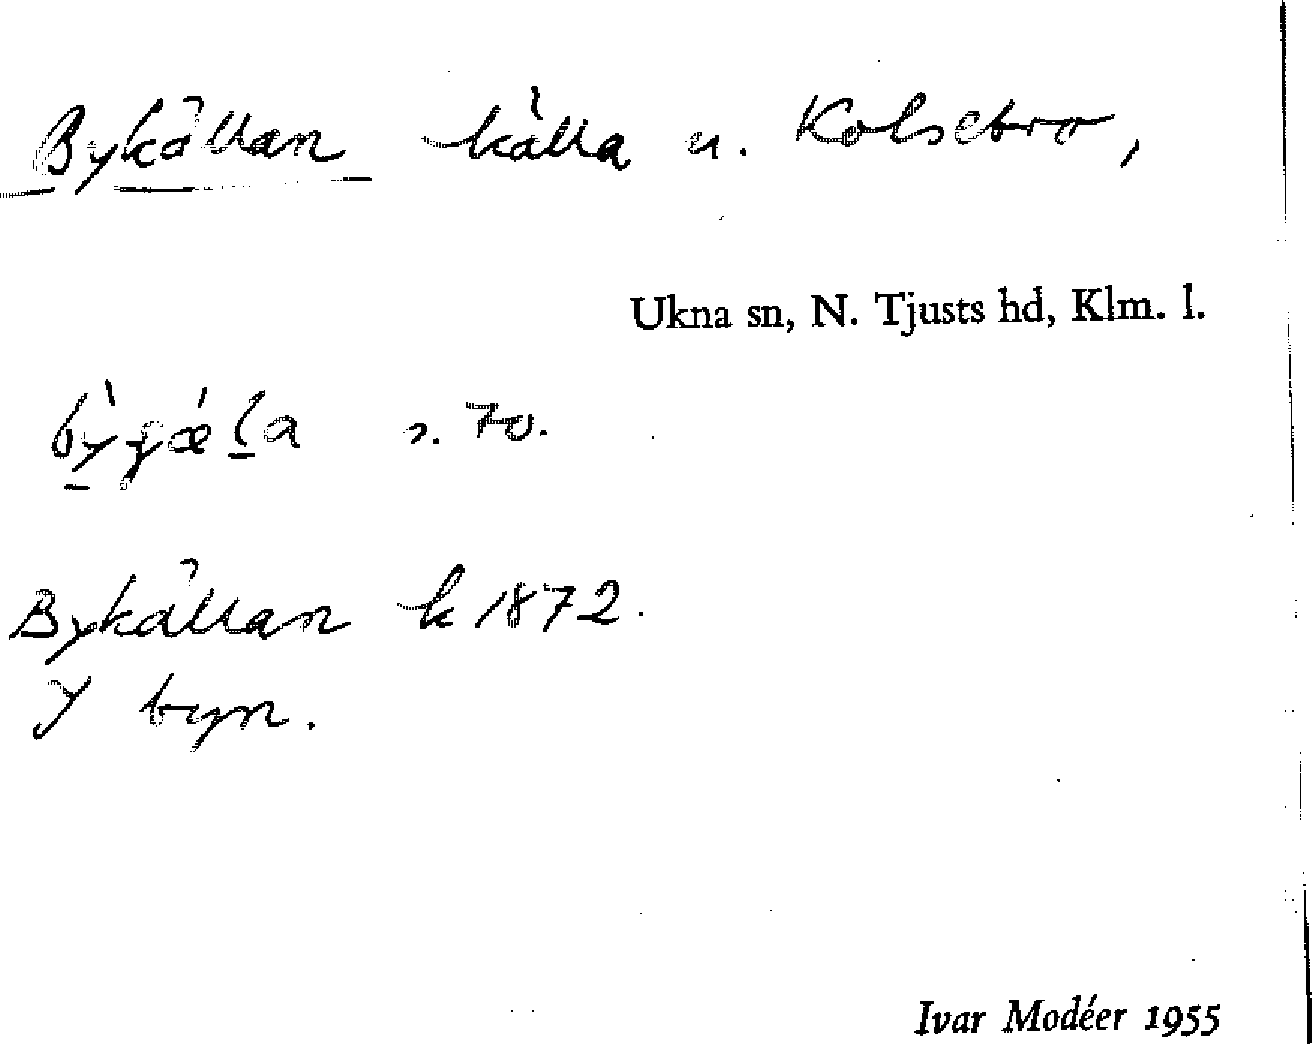 Bykällan källa u. Kolsebro,
Ukna sn, N. Tjusts hd, Klm. l.
s. 70.
Bykällan k 1872.
I byn.
Ivar Modéer 1955